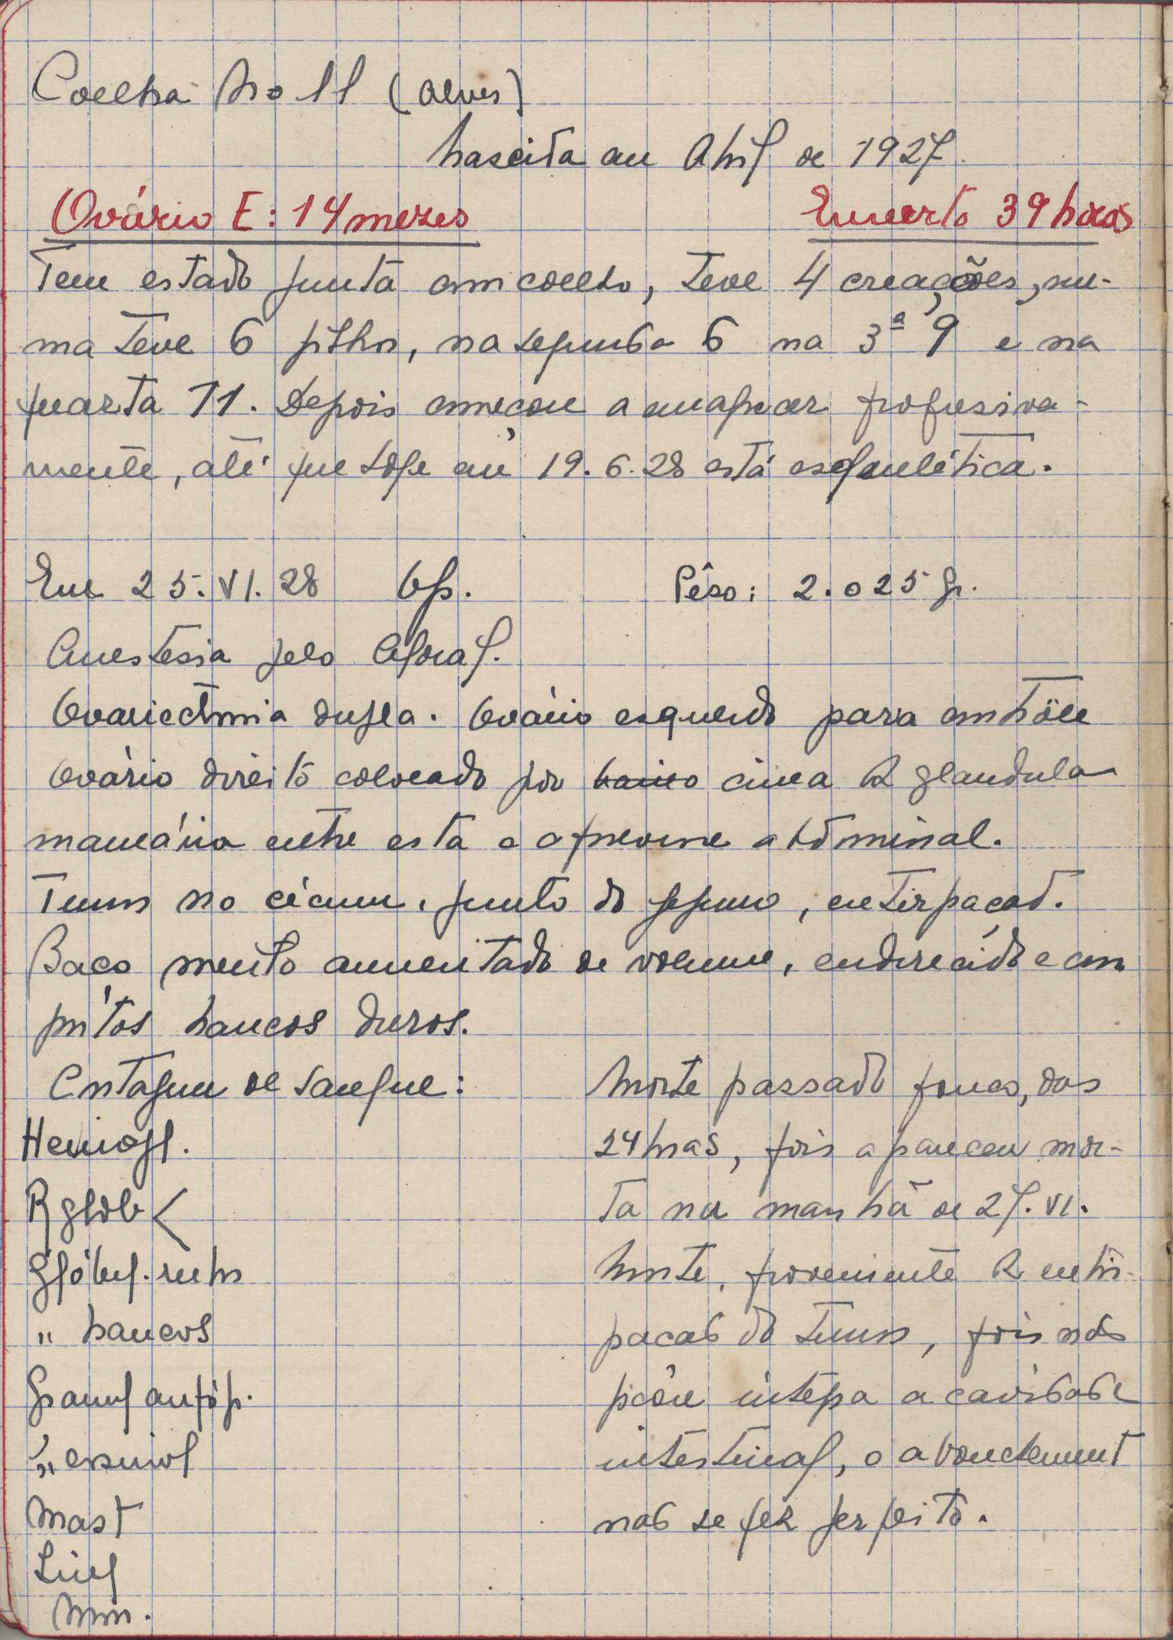 Coelha No 11 (Alves)
Nascida em Abril de 1927.
Ovário E: 14 mezes
Enxerto 39 horas
Tem estado junta com coelho, teve 4 creações, nu-
ma teve 6 filhos, na segunda 6 na 3ª 9 e na
quarta 11. Depois começou a emagrecer progressiva-
mente, até que hoje em 19.6.28 está esquelética.
Em 25.VI.28 Op. Pêso: 2.025 gr.
Anestesia pelo Cloral.
Ovariectomia dupla. Ovário esquerdo para controle
Ovário direito colocado por baixo cima da glandula
mamária entre esta e a parede abdominal.
Tumor no cécum, junto do jejuno, extirpação.
Baço muito aumentado de volume, endurecido e com
pontos brancos duros.
Contagem de sangue:
Hemogl.
R glob <
Glóbul. rubros
" brancos
Granul neutróf.
" eosinof
Mast
Linf
Mon.
Morte passado pouco, das
24 horas, pois apareceu mor-
ta na manhã de 27.VI.
Morte, proveniente da extir-
pação do tumor, pois não
ficou íntegra a cavidade
intestinal, o abouchement
não se fez perfeito.